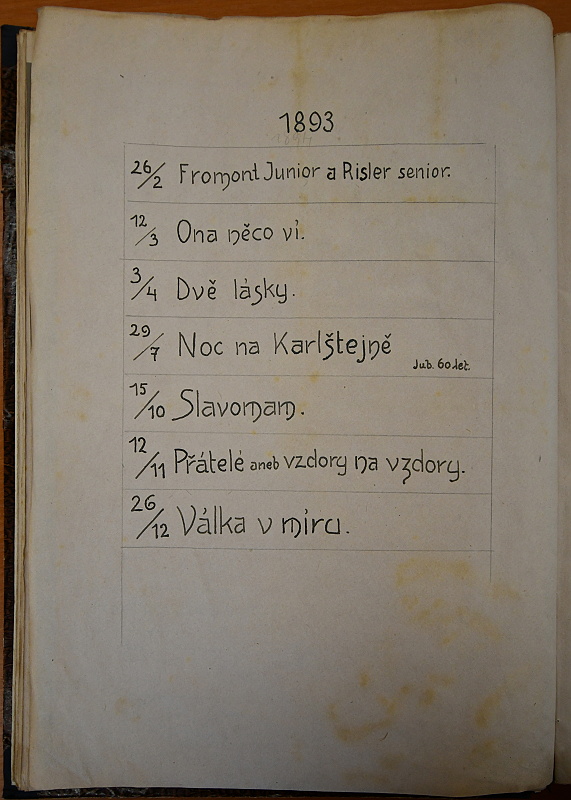 1893
26/2 Fromont Junior a Risler senior.
12/3 Ona něco ví.
3/4 Dvě lásky.
29/7 Noc na Karlštejně
Jub. 60 let.
15/10 Slavomam.
12/11 Přátelé aneb vzdory na vzdory.
26/12 Válka v míru.